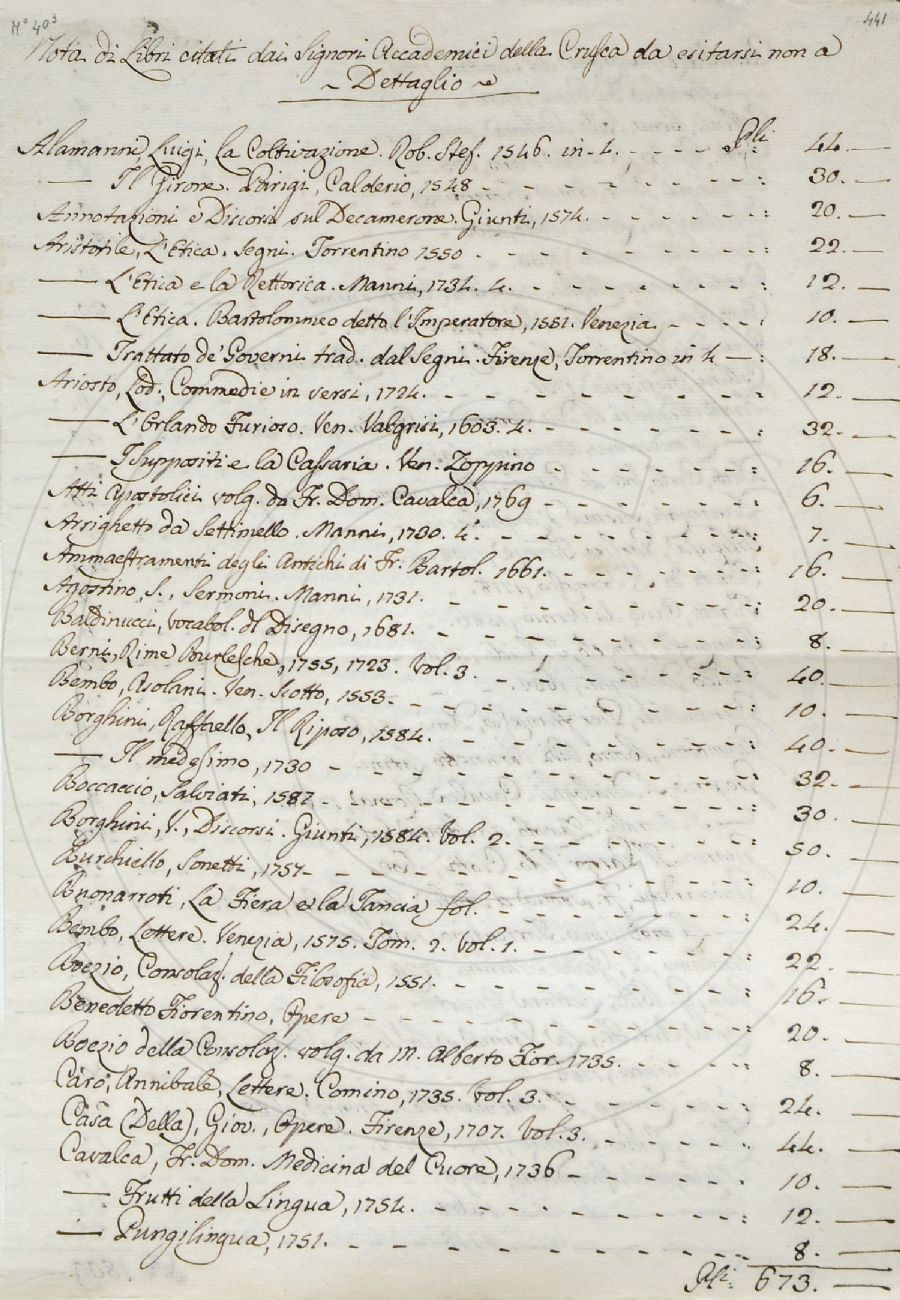 N° 403
441
Nota di Libri citati dai Signori Accademici della Crusca da esitarsi non a
~ Dettaglio ~
Alamanni, Luigi, la Coltivazione. Rob. Stef. 1546. in 4. - - - - Pli 44. —
— Il Girone. Parigi, Calderio, 1548 - - - - - - - : 30. —
Annotazioni e Discorsi sul Decamerone. Giunti, 1574. - - - - - : 20. —
Aristotile, L'Etica. Segni. Torrentino 1550 - - - - - - - - : 22. —
— L'Etica e la Rettorica. Manni, 1734. 4. - - - - - - - : 12. —
— L'Etica. Bartolommeo detto l'Imperatore, 1551. Venezia - - - - : 10. —
— Trattato de' Governi trad. dal Segni. Firenze, Torrentino in 4 — : 18. —
Ariosto, Lod., Commedie in versi, 1724. - - - - - - - - : 12. —
— L'Orlando Furioso. Ven. Valgrisi, 1603. 4. - - - - - - : 32. —
— I Suppositi e la Cassaria. Ven. Zoppino - - - - - - : 16. —
Atti Apostolici volg. da Fr. Dom. Cavalca, 1769 - - - - - - : 6. —
Arrighetto da Settimello. Manni, 1730. 4. - - - - - - - : 7. —
Ammaestramenti degli Antichi di Fr. Bartol. 1661. - - - - - : 16. —
Agostino, S., Sermoni. Manni, 1731. - - - - - - - - : 20. —
Baldinucci, vocabol. del Disegno, 1681. - - - - - - - - : 8. —
Berni, Rime Burlesche, 1755, 1723. Vol. 3. - - - - - - - : 40. —
Bembo, Asolani. Ven. Scotto, 1553. - - - - - - - - - : 10. —
Borghini, Raffaello, Il Riposo, 1584. - - - - - - - - : 40. —
— Il medesimo, 1730 - - - - - - - - - - - : 32. —
Boccaccio, Salviati, 1587 - - - - - - - - - - - : 30. —
Borghini, V., Discorsi. Giunti, 1584. Vol. 2. - - - - - - : 50. —
Burchiello, Sonetti, 1757 - - - - - - - - - - - : 10. —
Buonarroti, La Fiera e la Tancia fol. - - - - - - - : 24. —
Bembo, Lettere. Venezia, 1575. Tom. 2. Vol. 1. - - - - - - : 22. —
Boezio, Consolaz. della Filosofia, 1551. - - - - - - - - : 16. —
Benedetto Fiorentino, Opere - - - - - - - - - - : 20. —
Boezio della Consolaz. volg. da M. Alberto Fior. 1735. - - - - : 8. —
Caro, Annibale, Lettere. Comino, 1735. Vol. 3. - - - - - - : 24. —
Casa (Della), Giov., Opere. Firenze, 1707. Vol. 3. - - - - - : 44. —
Cavalca, Fr. Dom. Medicina del Cuore, 1736 - - - - - - : 10. —
— Frutti della Lingua, 1754. - - - - - - - - - : 12. —
— Pungilingua, 1751. - - - - - - - - - - - : 8. —
Pli 673. —